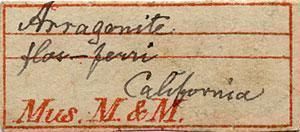 Arragonite
flos-ferri
California
Mus. M. & M.